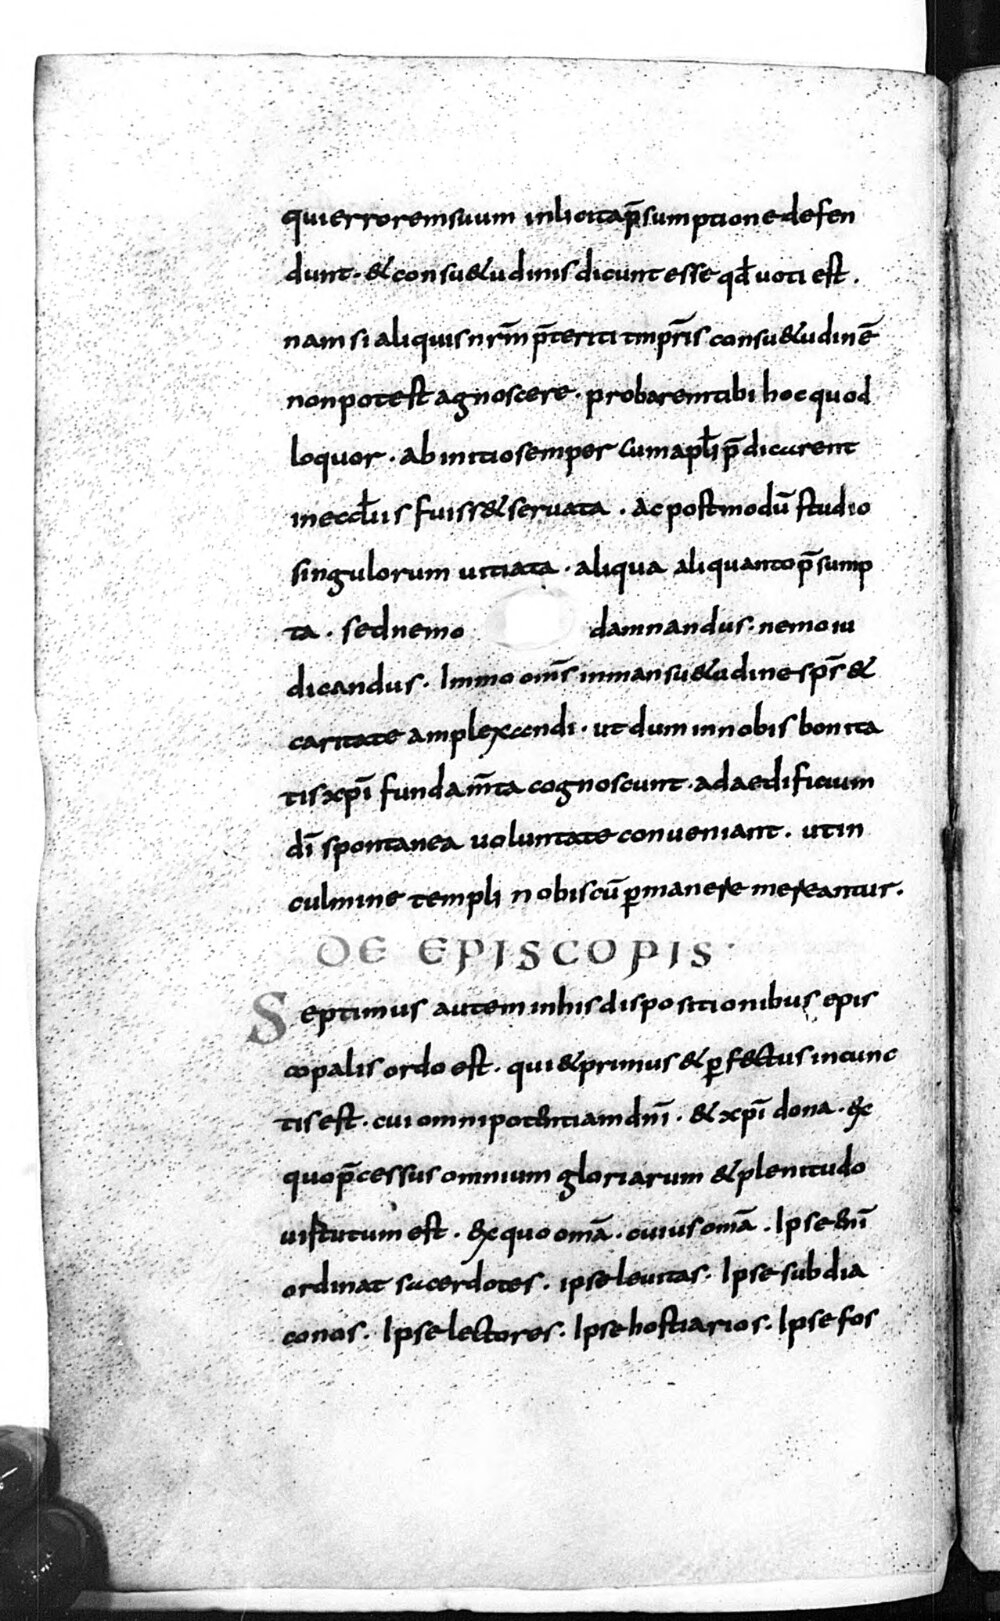 qui errorem suum inlicita p̄sumptione defen
dunt · & consu&udinis dicunt esse qđ uoti est .
nam si aliquis nr̄m p̄teriti tmpr̄is consu&udinē
non potest agnoscere · probarem tibi hoc quod
loquor · ab initio semper cum apłi p̄dicarent
in eccłiis fuiss& seruata · Ac postmodū studio
singulorum uitiata · aliqua aliquanto p̄sump
ta · sed nemo damnandus · nemo iu
dicandus · Immo om̄s in mansu&udine sp̄s &
caritate amplexandi · ut dum in nobis bonita
tis xp̄i fundam̄ta cognoscunt · ad aedificium
dī spontanea uoluntate conueniant · ut in
culmine templi nobiscū ꝑmanere mereantur .
DE EPISCOPIS ·
Septimus autem in his dispositionibus epis
copalis ordo est · qui & primus & ꝑfectus in cunc
tis est · cui omnipotentiam dn̄i · & xp̄i dona · &c
quo p̄cessus omnium gloriarum & plenitudo
uirtutum est · &c quo omā · cuius omā · Ipse enī
ordinat sacerdotes · ipse leuitas · Ipse subdia
conos · Ipse lectores · Ipse hostiarios · Ipse fos